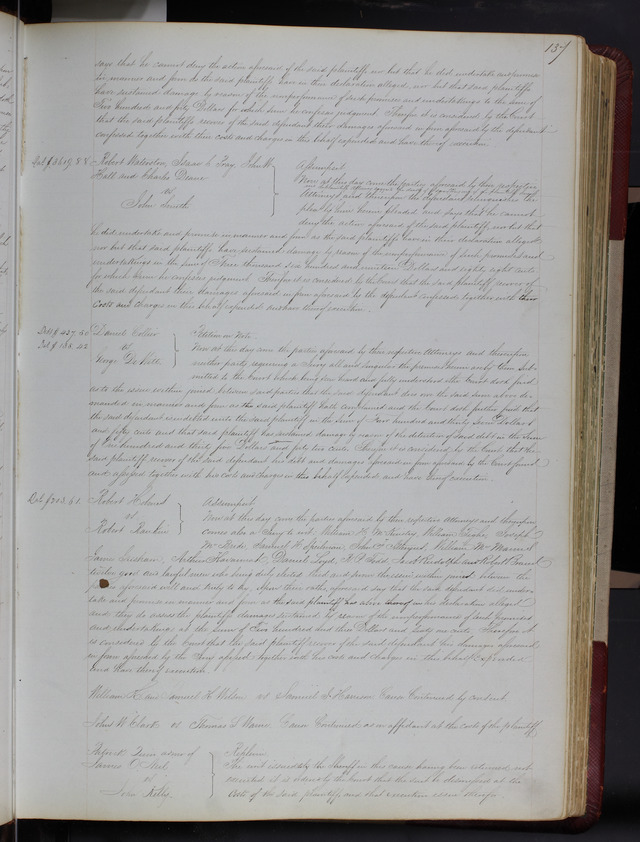 137
says that he cannot deny the action aforesaid of the said plaintiffs nor but that he did undertake and promise
in manner and form as the said plaintiffs have in their declaration alleged, nor but that said plaintiffs
have sustained damage by reason of the nonperformance of such promises and undertakings to the sum of
Five hundred and fifty Dollars for which sum he confesses judgment. Therefore it is considered by the Court
that the said plaintiffs recover of the said defendant their damages aforesaid in form aforesaid by the defendant
confessed together with their costs and charges in this behalf expended and have thereof execution
Robert Waterston, Isaac
Hall and Charles Deane
vs
John Smith
Assumpsit
Now at this day came the parties aforesaid by their respective
Attorneys and thereupon the defendant relinquishes the
plea by him herein pleaded and says that he cannot
deny the action aforesaid of the said plaintiffs nor but that
he did undertake and promise in manner and form as the said plaintiffs have in their declaration alleged
nor but that said plaintiffs have sustained damage by reason of the nonperformance of such promises and
undertakings to the sum of Three thousand six hundred and nineteen Dollars and eighty eight cents
for which sum he confesses judgment. Therefore it is considered by the Court that the said plaintiffs recover of
the said defendant their damages aforesaid in form aforesaid by the defendant confessed together with their
Costs and charges in this behalf expended and have thereof execution.
Debt $437.50
Daniel Collier
vs
George
Petition in Debt
Now at this day came the parties aforesaid by their respective Attorneys and thereupon
neither party requiring a Jury all and singular the premises herein are by them sub-
mitted to the Court which being seen heard and fully understood the Court doth find
as to the issue within joined between said parties that the said defendant does owe the said sum above de-
manded in manner and form as the said plaintiff hath complained and the Court doth further find that
the said defendant is indebted unto the said plaintiff in the sum of Four hundred and thirty seven Dollars
and fifty cents and that said plaintiff has sustained damage by reason of the detention of said debt in the Sum
of One hundred and thirty five Dollars and forty two cents. Therefore it is considered by the Court that the
said plaintiff recover of the said defendant his debt and damages aforesaid in form aforesaid by the Court found
and assessed together with his costs and charges in this behalf expended and have thereof execution.
Robert
vs
Robert Rankin
Assumpsit
Now at this day come the parties aforesaid by their respective Attorneys and thereupon
comes also a Jury to wit William
Mc Bride, Samuel H. William Mc
James Daniel Loyd and Robert
twelve good and lawful men who being duly elected tried and sworn the issue within joined between the
parties aforesaid well and truly to try upon their oaths aforesaid say that the said defendant did under-
take and promise in manner and form as the said plaintiff in his declaration alleged
and they do assess the plaintiffs damages sustained by reason of the nonperformance of such promises
and undertakings at the sum of Two hundred and three Dollars and sixty one cents Therefore it
is considered by the Court that the said plaintiff recover of the said defendant his damages aforesaid
in form aforesaid by the Jury assessed together with his costs and charges in this behalf Expended
and Have thereof execution
William and Samuel vs Samuel Harrison Cause Continued by consent.
John W Clark vs Thomas S Cause Continued as on affidavit at the costs of the plaintiff
Patrick
James
vs
John Kelly
Replevin
The writ issued to the Sheriff in this cause having been returned not
executed it is ordered by the Court that the suit be dismissed at the
Costs of the said plaintiff, and that execution issue therefor